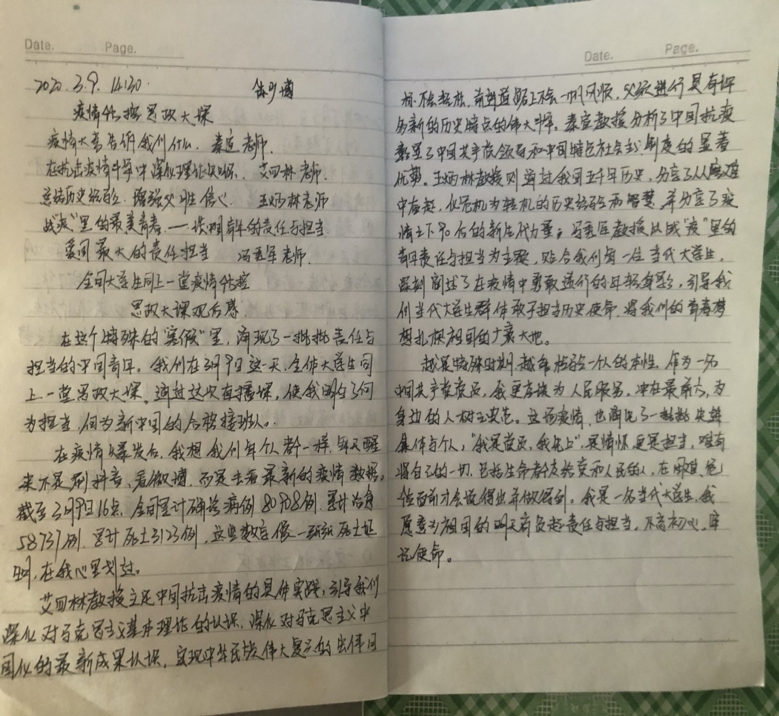 Date. Page.
2020.3.9. 14:30
疫情牵挂思政大课
疫情大考告诉我们什么 秦宣老师.
在抗击疫情斗争中深化理论认识. 艾四林老师.
总结历史经验 增强必胜信心 王炳林老师
战"疫"里的最美青春——谈期青年的责任与担当
爱国最大的责任担当 冯秀军老师.
全国大学生同上一堂疫情防控
思政大课观后感
在这个特殊的"寒假"里, 涌现了一批批责任与
担当的中国青年. 我们在3月9日这一天, 全体大学生同
上一堂思政大课. 通过这次直播课, 使我明白了何
为担当, 何为新中国的合格接班人.
在疫情爆发后, 我想我们每个人都一样, 每天醒
来不是刷抖音, 看微博, 而是去看最新的疫情数据,
截至3月9日16点, 全国累计确诊病例80908例. 累计治愈
58737例. 累计死亡3123例, 这些数字像一颗颗
在我心里划过.
艾四林教授立足中国抗击疫情的具体实践, 引导我们
深化对马克思主义基本理论的认识, 深化对马克思主义中
国化的最新成果认识, 实现中华民族伟大复兴的
Date. Page.
前进道路上不会一帆风顺, 必须进行具有许
多新的历史特点的伟大斗争. 秦宣教授分析了中国抗疫
彰显了中国共产党领导和中国特色社会主义制度的显著
优势. 王炳林教授则通过我国五千年历史, 分享了从磨难
中奋起, 化危机为转机的历史经验和智慧, 并分享了疫
情之下90后的新生代力量; 冯秀军教授从战"疫"里的
青年责任与担当为主题, 贴合我们每一位当代大学生,
深刻阐述了在疫情中勇敢逆行的年轻身影, 引导我
们当代大学生群体敢于担当历史使命, 将我们的青春梦
想扎根祖国的广袤大地.
越是特殊时期, 越能检验一个人的本性. 作为一名
中国共产党党员, 我更应该为人民服务, 冲在最前头, 为
身边的人树立典范. 这场疫情, 也涌现了一批批先进
集体与个人, "我是党员, 我先上". 是情怀更是担当, 唯有
将自己的一切, 包括生命都交给党和人民的人, 在困难、危
险面前才会说得出并做得到. 我是一名当代大学生, 我
愿意为祖国的明天肩负起责任与担当. 不忘初心, 牢
记使命.